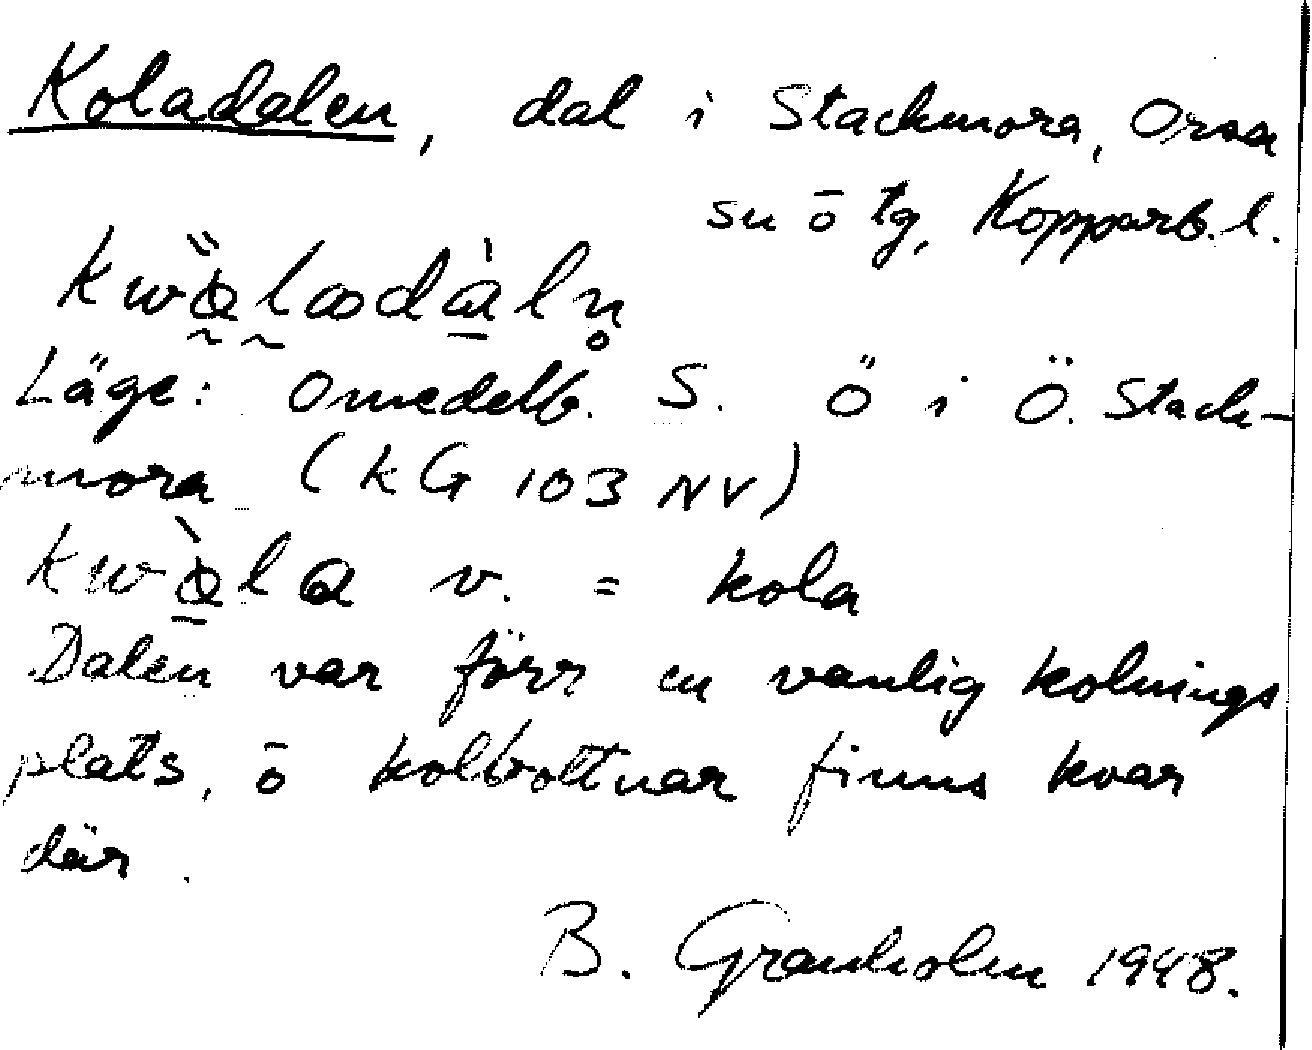 Koladalen, dal i Stackmora, Orsa
sn ō tg, Kopparb. l.
Läge: Omedelb. S. Ö i Ö. Stack-
mora (KG 103 NV)
v. = kola
Dalen var förr en vanlig kolnings
plats, ō kolbottnar finns kvar
där.
B. Granholm 1948.